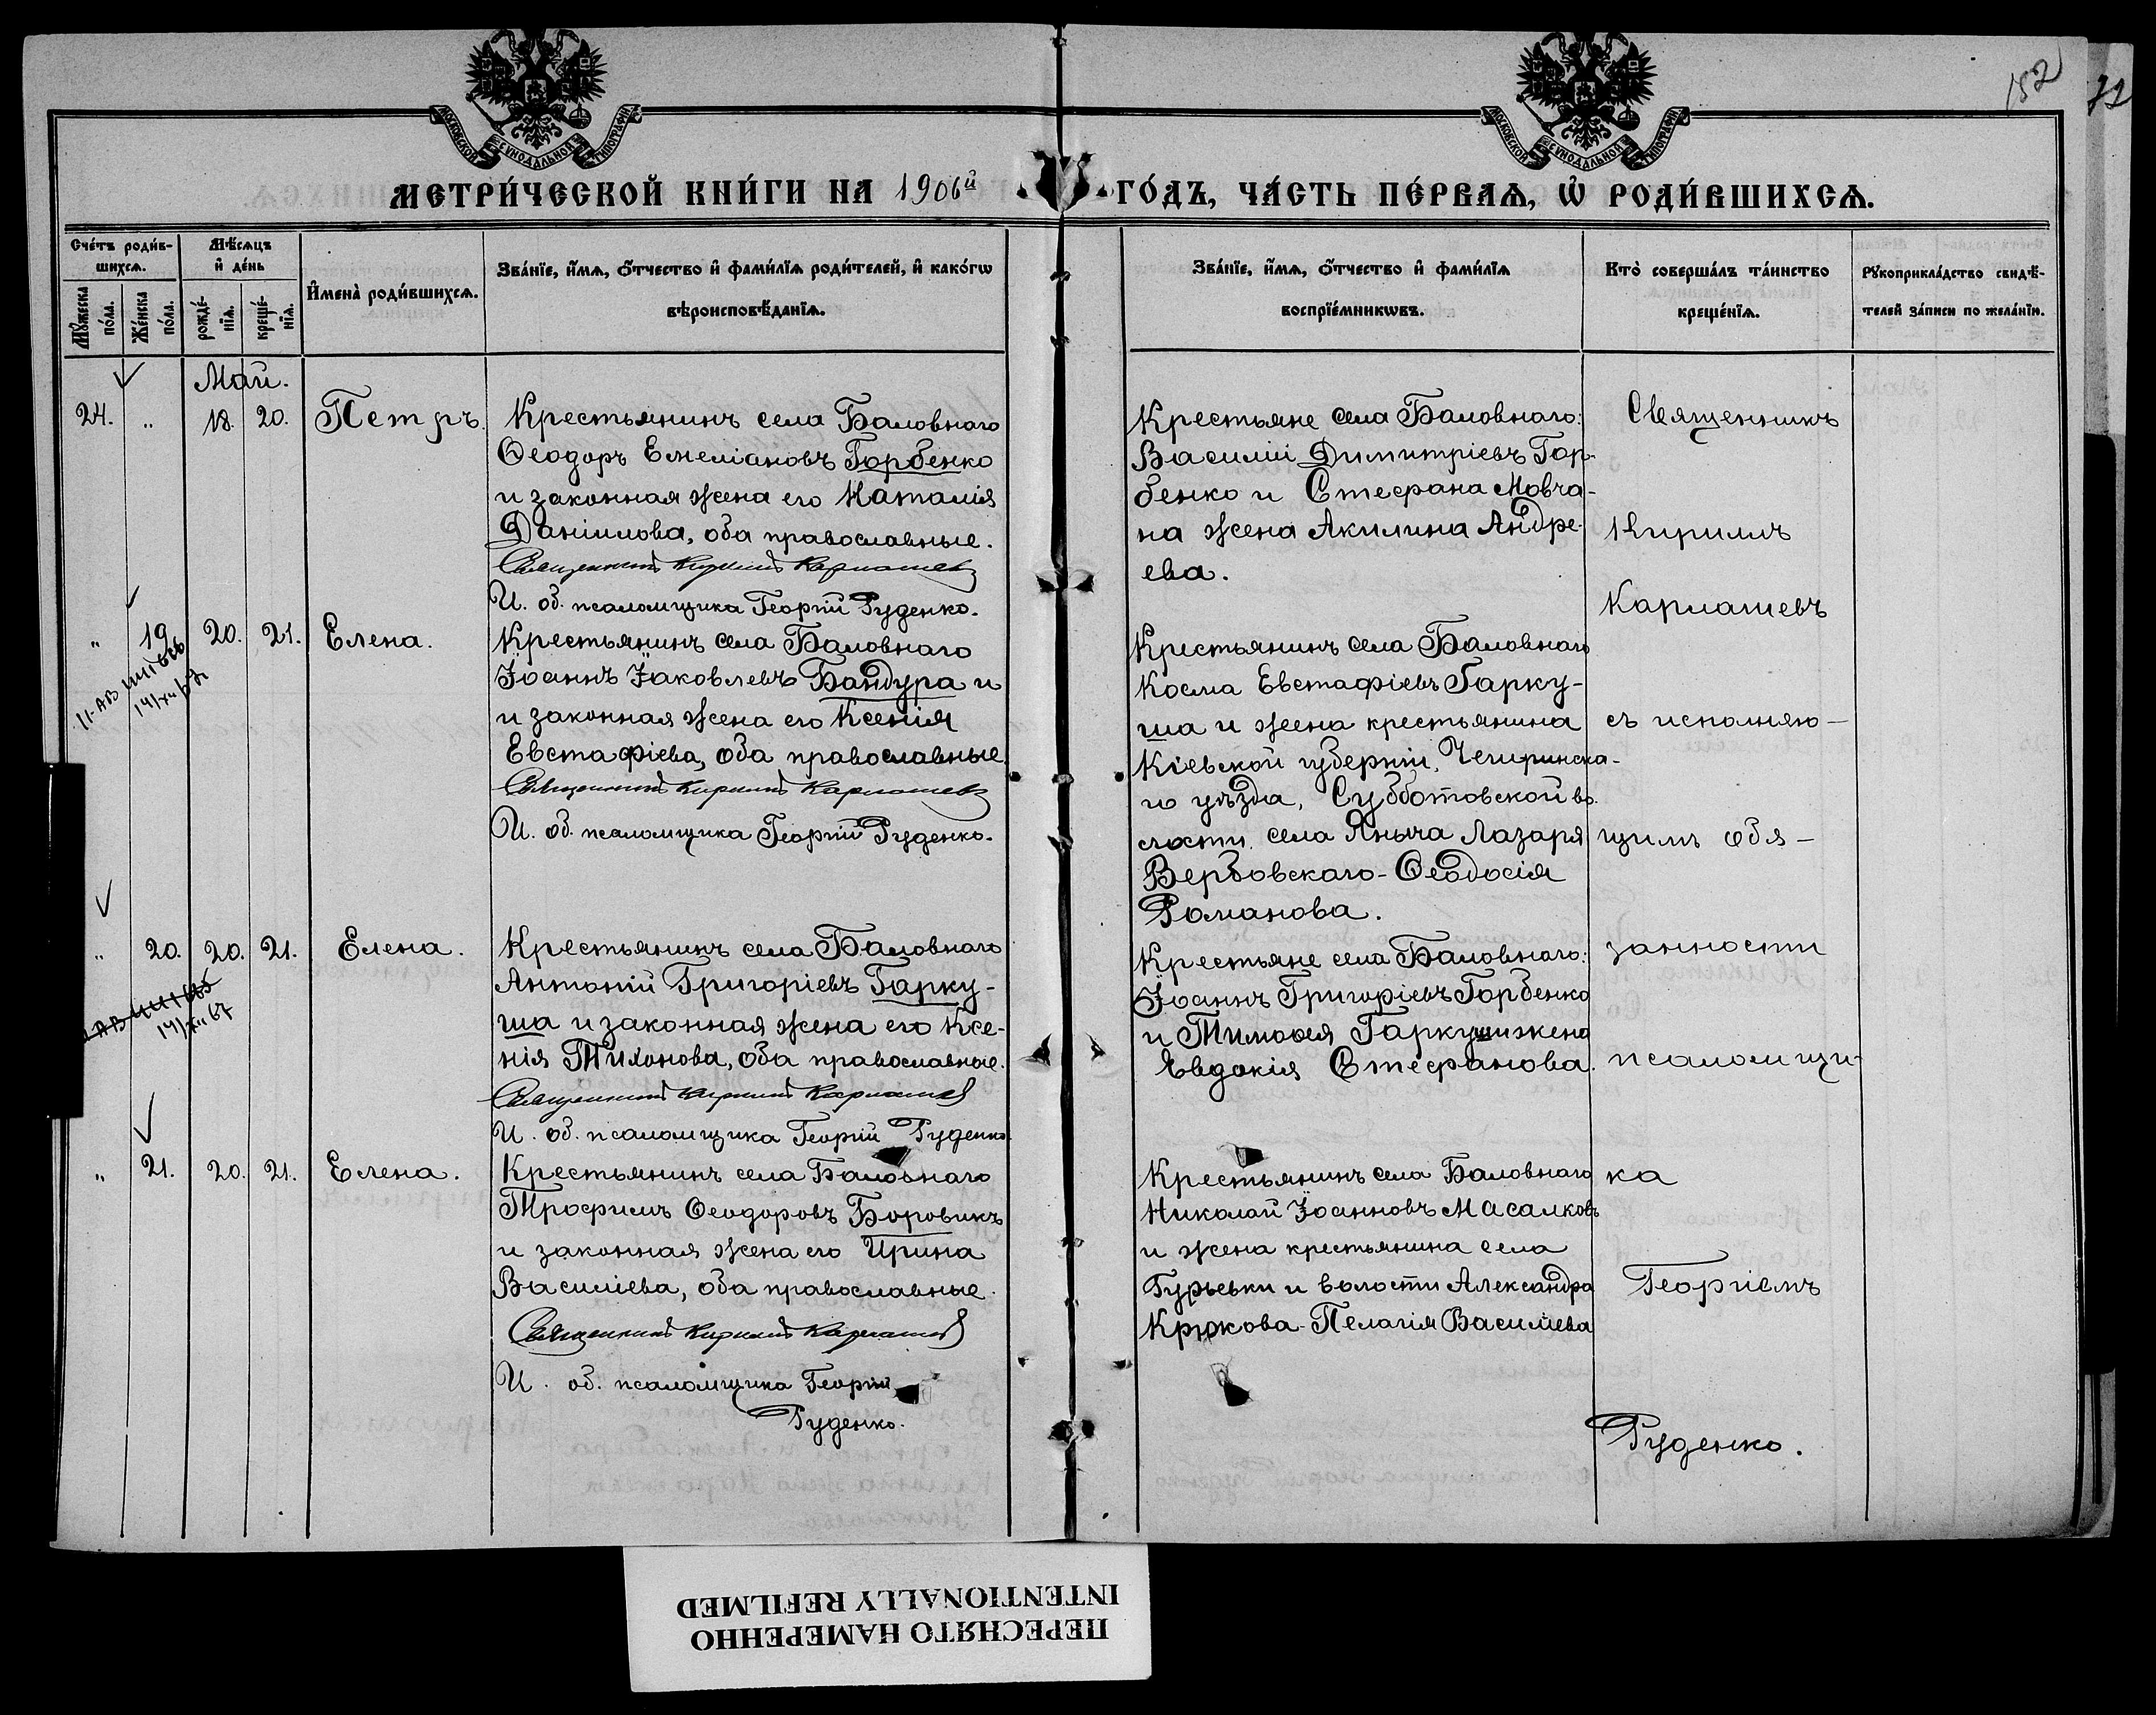 МОСКОВСКОЙ СУНОДАЛЬНОЙ ТИПОГРАФІИ
МОСКОВСКОЙ СУНОДАЛЬНОЙ ТИПОГРАФІИ
152
МЕТРИ́ЧЕСКОЙ КНИ́ГИ НА 1906й ГО́ДЪ, ЧА́СТЬ ПЕ́РВАѦ, Ѡ҆ РОДИ́ВШИХСѦ.
Сче́тъ роди́в-
шихсѧ.
Мꙋ́жеска
по́ла.
Же́нска
по́ла.
Мѣ́сѧцъ
и҆ де́нь
рожде́-
нїѧ.
креще́-
нїѧ.
И҆мена̀ роди́вшихсѧ.
Зва́нїе, и҆́мѧ, ѻ҆́тчество и҆ фами́лїѧ роди́телей, и҆ како́гѡ
вѣроисповѣ́данїѧ.
Зва́нїе, и҆́мѧ, ѻ҆́тчество и҆ фами́лїѧ
воспрїе́мникѡвъ.
Кто̀ соверша́лъ та́инство
креще́нїѧ.
Рꙋкоприкла́дство свидѣ́-
телей за́писи по жела́нїю.
Май.
24.
"
18.
20.
Петръ.
Крестьянинъ села Баловнаго
Ѳеодоръ Емеліановъ Горбенко
и законная жена его Наталія
Даніилова, оба православные.
Священникъ Кириллъ Карпашевъ
И. об. псаломщика Георгій Руденко.
Крестьяне села Баловнаго:
Василій Димитріевъ Гор-
бенко и Стефана Мовча-
на жена Акилина Андре-
ева.
"
19
20.
21.
Елена.
14/XII 67
Крестьянинъ села Баловнаго
Іоаннъ Іаковлевъ Бандура и
и законная жена его Ксенія
Евстафіева, оба православные.
Священникъ Кириллъ Карпашевъ
И. об. псаломщика Георгій Руденко.
Крестьянинъ села Баловнаго
Косма Евстафіевъ Гарку-
ша и жена крестьянина
Кіевской губерніи, Чегиринска-
го уѣзда, Субботовской во-
лости села Яныча Лазаря
Вербовскаго - Ѳеодосія
Романова.
"
20.
20.
21.
Елена.
14/XII 67
Крестьянинъ села Баловнаго
Антоній Григоріевъ Гарку-
ша и законная жена его Ксе-
нія Тихонова, оба православные.
Священникъ Кириллъ Карпашевъ
И. об. псаломщика Георгій Руденко.
Крестьяне села Баловнаго:
Іоаннъ Григоріевъ Горбенко
и Тимоѳея Гаркуши жена
Евдокія Стефанова.
"
21.
20.
21.
Елена.
Крестьянинъ села Баловнаго
Трофимъ Ѳеодоровъ Боровикъ
и законная жена его Ирина
Василіева, оба православные.
Священникъ Кириллъ Карпашевъ
И. об. псаломщика Георгій
Руденко.
Крестьянинъ села Баловнаго
Николай Іоанновъ Масалковъ
и жена крестьянина села
Гурьевки и волости Александра
Крюкова - Пелагія Василіева
Священникъ
Кириллъ
Карпашевъ
съ исполняю-
щимъ обя-
занности
псаломщи-
ка
Георгіемъ
Руденко.
ПЕРЕСНЯТО НАМЕРЕННО
INTENTIONALLY REFILMED